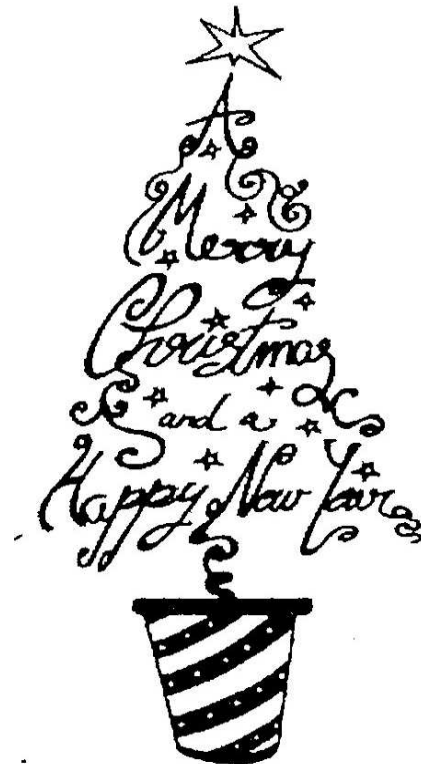 A
Merry
Christmas
and a
Happy New Year